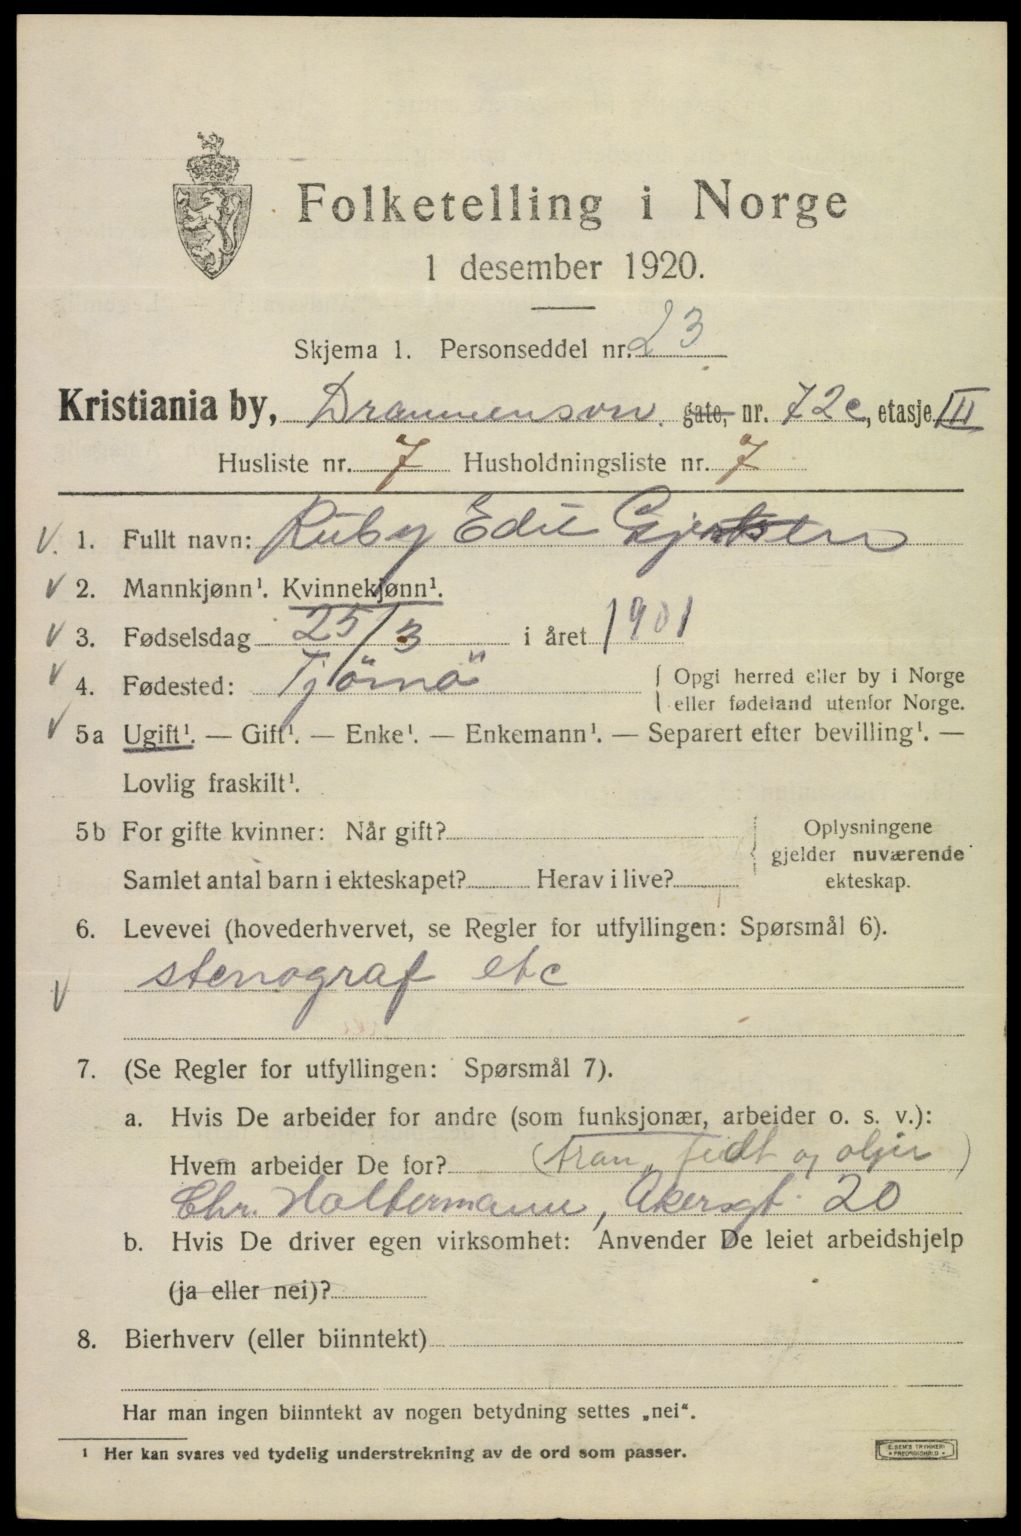 Folketelling i Norge
1 desember 1920.
Skjema 1. Personseddel nr. 23
Kristiania by, Drammensvn. gate, nr. 72c, etasje III
Husliste nr. 7 Husholdningsliste nr. 7
1. Fullt navn: Ruby Edie Gjertsen
2. Mannkjønn¹. Kvinnekjønn¹.
3. Fødselsdag 25/3 i året 1901
4. Fødested: Tjömö { Opgi herred eller by i Norge
eller fødeland utenfor Norge.
5a Ugift¹. — Gift¹. — Enke¹. — Enkemann¹. — Separert efter bevilling¹. —
Lovlig fraskilt¹.
5b For gifte kvinner: Når gift? { Oplysningene
gjelder nuværende
Samlet antal barn i ekteskapet? Herav i live? ekteskap.
6. Levevei (hovederhvervet, se Regler for utfyllingen: Spørsmål 6).
stenograf etc
7. (Se Regler for utfyllingen: Spørsmål 7).
a. Hvis De arbeider for andre (som funksjonær, arbeider o. s. v.):
Hvem arbeider De for? (tran, fedt og oljer)
Chr. Holtermann, Akersgt. 20
b. Hvis De driver egen virksomhet: Anvender De leiet arbeidshjelp
(ja eller nei)?
8. Bierhverv (eller biinntekt)
Har man ingen biinntekt av nogen betydning settes „nei“.
¹ Her kan svares ved tydelig understrekning av de ord som passer.
E. SEM'S TRYKKERI
FREDRIKSHALD